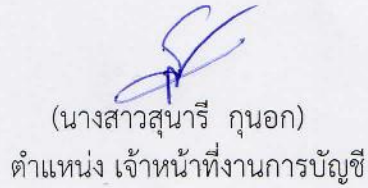 (นางสาวสุนารี กุนอก)
ตำแหน่ง เจ้าหน้าที่งานการบัญชี